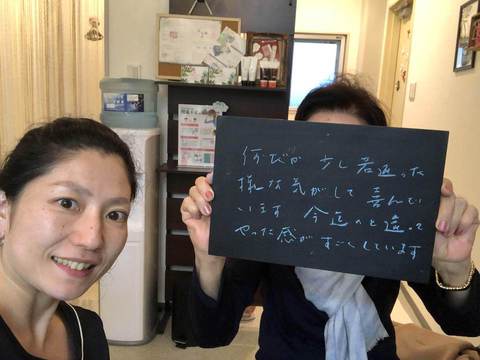 何だか 少し若返った
様な気がして 喜んで
います 今迄のと違って
やった感が すごくしています